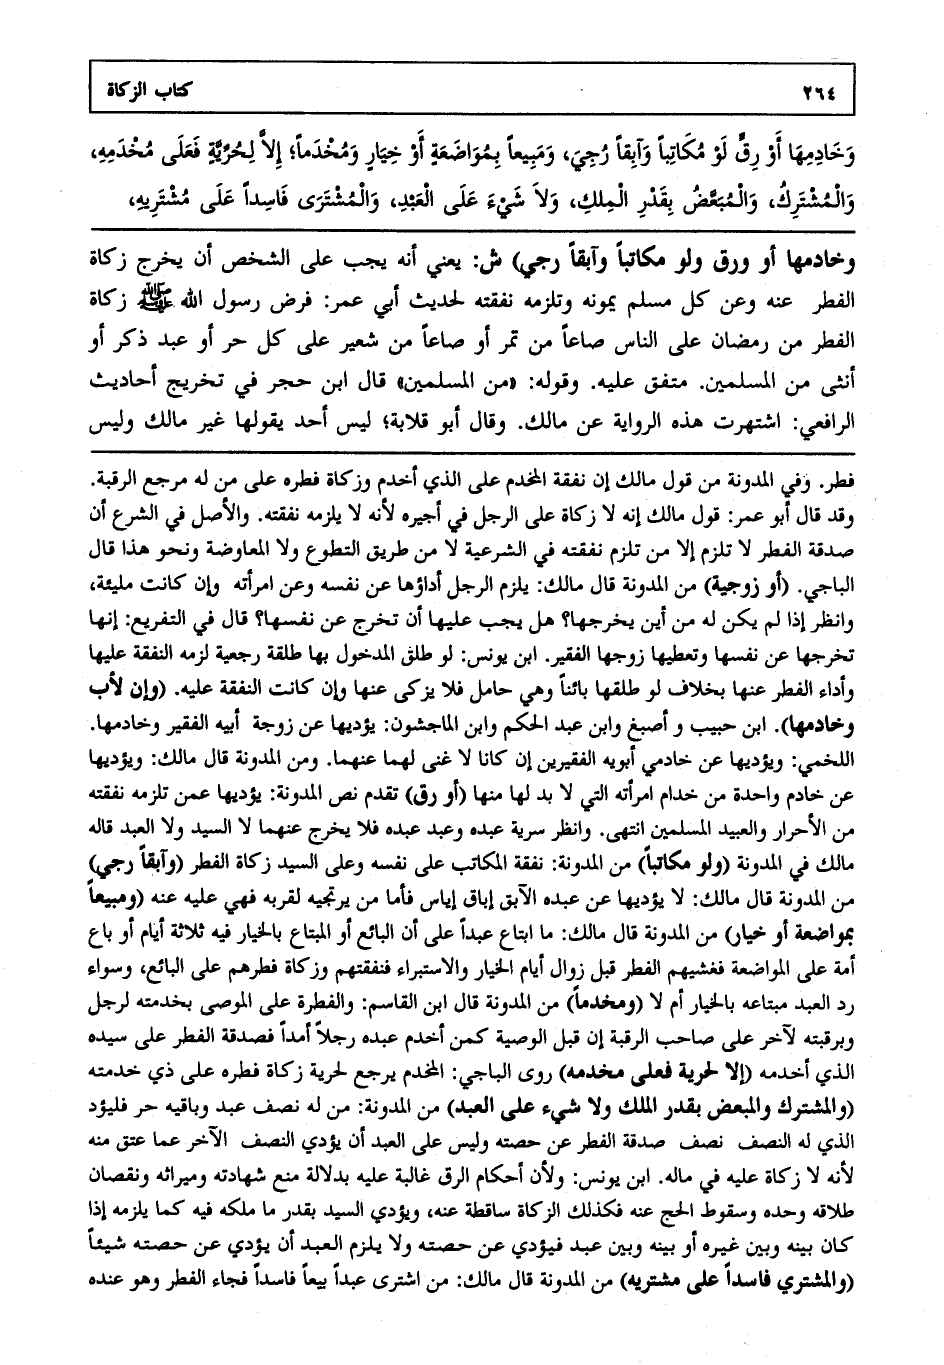 ٢٦٤ كتاب الزكاة
وَخَادِمِهَا أَوْ رِقٍّ لَوْ مُكَاتِباً وَآبِقاً رُجِيَ، وَمَبِيعاً بِمُوَاضَعَةٍ أَوْ خِيَارٍ وَمُخْدَماً؛ إِلاَّ لِحُرِّيَّةٍ فَعَلَى مُخْدَمِهِ،
وَالْمُشْتَرِكُ، وَالْمُبَعَّضُ بِقَدْرِ الْمِلكِ، وَلاَ شَيْءَ عَلَى الْعَبْدِ، وَالْمُشْتَرَى فَاسِداً عَلَى مُشْتَرِيهِ،
وخادمها أو ورق ولو مكاتباً وآبقاً رجي) ش: يعني أنه يجب على الشخص أن يخرج زكاة
الفطر عنه وعن كل مسلم يمونه وتلزمه نفقته لحديث أبي عمر: فرض رسول الله ﷺ زكاة
الفطر من رمضان على الناس صاعاً من تمر أو صاعاً من شعير على كل حر أو عبد ذكر أو
أنثى من المسلمين. متفق عليه. وقوله: «من المسلمين» قال ابن حجر في تخريج أحاديث
الرافعي: اشتهرت هذه الرواية عن مالك. وقال أبو قلابة؛ ليس أحد يقولها غير مالك وليس
فطر. وفي المدونة من قول مالك إن نفقة المخدم على الذي أخدم وزكاة فطره على من له مرجع الرقبة.
وقد قال أبو عمر: قول مالك إنه لا زكاة على الرجل في أجيره لأنه لا يلزمه نفقته. والأصل في الشرع أن
صدقة الفطر لا تلزم إلا من تلزم نفقته في الشرعية لا من طريق التطوع ولا المعاوضة ونحو هذا قال
الباجي. (أو زوجية) من المدونة قال مالك: يلزم الرجل أداؤها عن نفسه وعن امرأته وإن كانت مليئة،
وانظر إذا لم يكن له من أين يخرجها؟ هل يجب عليها أن تخرج عن نفسها؟ قال في التفريع: إنها
تخرجها عن نفسها وتعطيها زوجها الفقير. ابن يونس: لو طلق المدخول بها طلقة رجعية لزمه النفقة عليها
وأداء الفطر عنها بخلاف لو طلقها بائناً وهي حامل فلا يزكى عنها وإن كانت النفقة عليه. (وإن لأب
وخادمها). ابن حبيب و أصبغ وابن عبد الحكم وابن الماجشون: يؤديها عن زوجة أبيه الفقير وخادمها.
اللخمي: ويؤديها عن خادمي أبويه الفقيرين إن كانا لا غنى لهما عنهما. ومن المدونة قال مالك: ويؤديها
عن خادم واحدة من خدام امرأته التي لا بد لها منها (أو رق) تقدم نص المدونة: يؤديها عمن تلزمه نفقته
من الأحرار والعبيد المسلمين انتهى. وانظر سرية عبده وعبد عبده فلا يخرج عنهما لا السيد ولا العبد قاله
مالك في المدونة (ولو مكاتباً) من المدونة: نفقة المكاتب على نفسه وعلى السيد زكاة الفطر (وآبقاً رجي)
من المدونة قال مالك: لا يؤديها عن عبده الآبق إباق إياس فأما من يرتجيه لقربه فهي عليه عنه (ومبيعاً
بمواضعة أو خيار) من المدونة قال مالك: ما ابتاع عبداً على أن البائع أو المبتاع بالخيار فيه ثلاثة أيام أو باع
أمة على المواضعة فغشيهم الفطر قبل زوال أيام الخيار والاستبراء فنفقتهم وزكاة فطرهم على البائع، وسواء
رد العبد مبتاعه بالخيار أم لا (ومخدماً) من المدونة قال ابن القاسم: والفطرة على الموصى بخدمته لرجل
وبرقبته لآخر على صاحب الرقبة إن قبل الوصية كمن أخدم عبده رجلاً أمداً فصدقة الفطر على سيده
الذي أخدمه (إلا لحرية فعلى مخدمه) روى الباجي: المخدم يرجع لحرية زكاة فطره على ذي خدمته
(والمشترك والمبعض بقدر الملك ولا شيء على العبد) من المدونة: من له نصف عبد وباقيه حر فليؤد
الذي له النصف نصف صدقة الفطر عن حصته وليس على العبد أن يؤدي النصف الآخر عما عتق منه
لأنه لا زكاة عليه في ماله. ابن يونس: ولأن أحكام الرق غالبة عليه بدلالة منع شهادته وميراثه ونقصان
طلاقه وحده وسقوط الحج عنه فكذلك الزكاة ساقطة عنه، ويؤدي السيد بقدر ما ملكه فيه كما يلزمه إذا
كان بينه وبين غيره أو بينه وبين عبد فيؤدي عن حصته ولا يلزم العبد أن يؤدي عن حصته شيئاً
(والمشتري فاسداً على مشتريه) من المدونة قال مالك: من اشترى عبداً بيعاً فاسداً فجاء الفطر وهو عنده